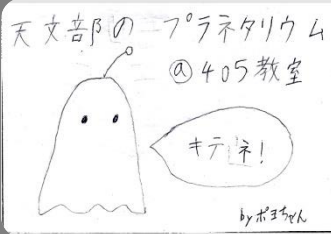 天文部のプラネタリウム
@405教室
キテネ!
byポヨちゃん